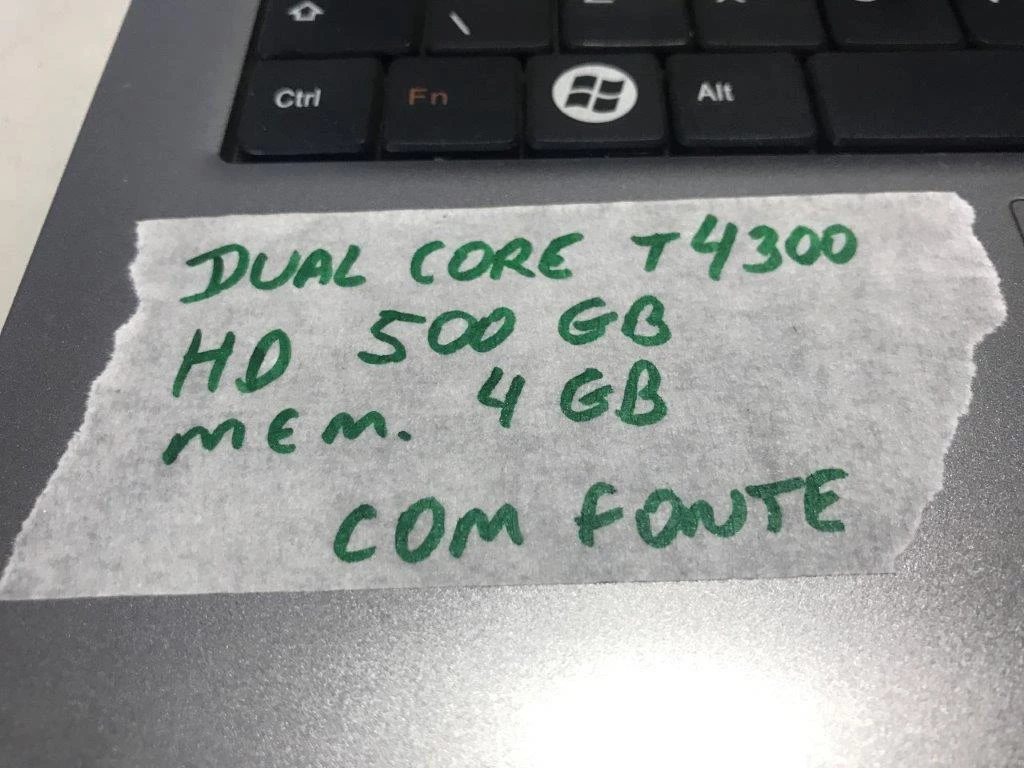 \
Ctrl Fn Alt
DUAL CORE T4300
HD 500 GB
MEM. 4 GB
COM FONTE